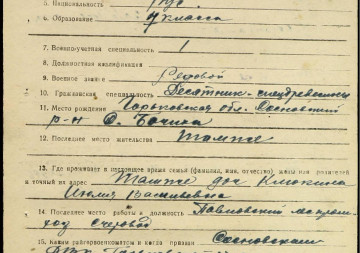 5. Национальность рус
6. Образование 4 класса
7. Военно-учетная специальность 1
8. Должностная квалификация
9. Военное звание Рядовой
10. Гражданская специальность Десятник-
11. Место рождения Горьковская обл. Сосновский
р-н с.
12. Последнее место жительства Также
13. Где проживает в настоящее время семья (фамилия, имя, отчество) жены или родителей
и точный их адрес Также
Васильевна
14. Последнее место работы и должность Павловский
15. Каким райгорвоенкоматом и когда призван Сосновским